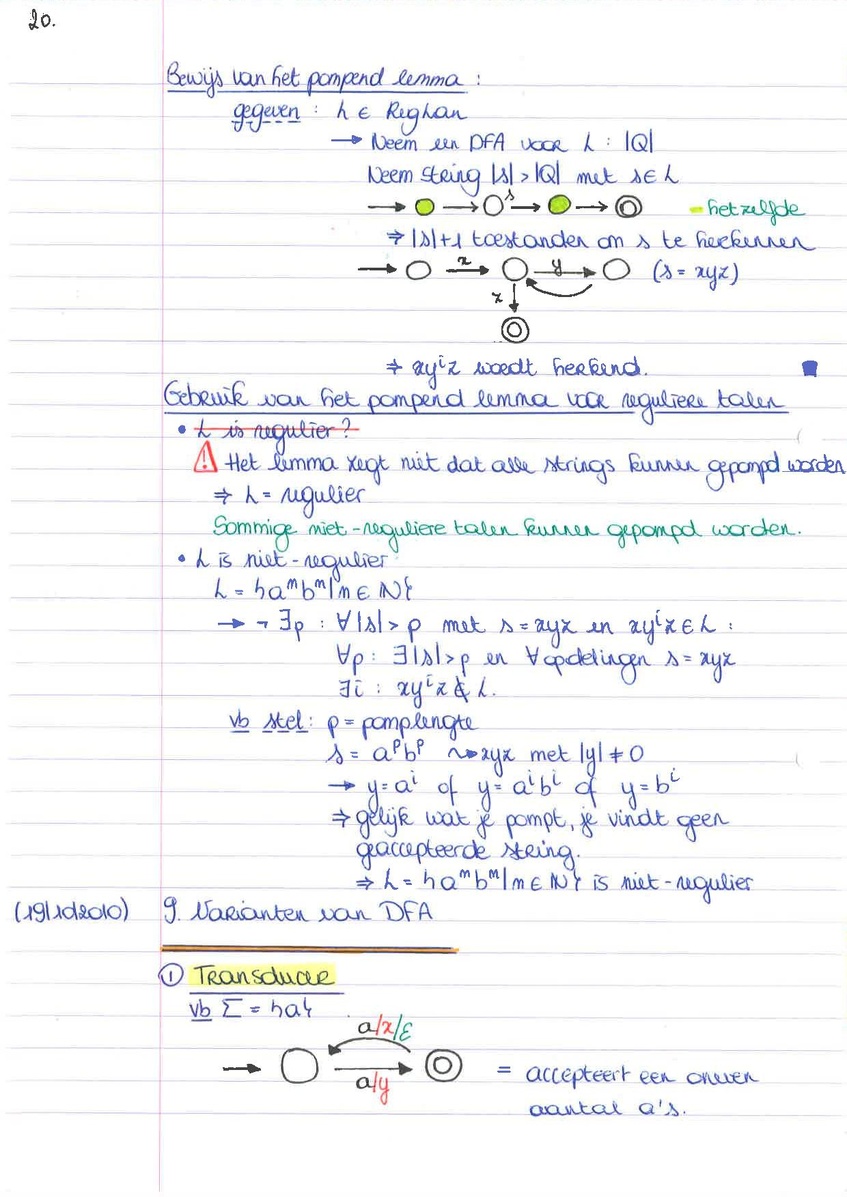 20.
Bewijs van het pompend lemma :
gegeven : L ∈ RegLan
→ Neem een DFA voor L : |Q|
Neem string |s| > |Q| met s ∈ L
s
- hetzelfde
⇒ |s|+1 toestanden om s te herkennen
x y (s = xyz)
z
⇒ xyⁱz wordt herkend.
Gebruik van het pompend lemma voor reguliere talen
• L is regulier ?
! Het lemma zegt niet dat alle strings kunnen gepompd worden
⇒ L = regulier
Sommige niet-reguliere talen kunnen gepompd worden.
• L is niet-regulier
L = {aⁿbⁿ | n ∈ ℕ}
→ ¬ ∃p : ∀|s| > p met s = xyz en xyⁱz ∈ L :
∀p : ∃|s| > p en ∀ opdelingen s = xyz
∃i : xyⁱz ∉ L.
vb stel : p = pomplengte
s = aᵖbᵖ ⇝ xyz met |y| ≠ 0
→ y = aⁱ of y = aⁱbⁱ of y = bⁱ
⇒ gelijk wat je pompt, je vindt geen
geaccepteerde string.
⇒ L = {aⁿbⁿ | n ∈ ℕ} is niet-regulier
(19/10/2010) 9. Varianten van DFA
① Transducer
vb Σ = {a}
a/x/ε
a/y
= accepteert een oneven
aantal a's.